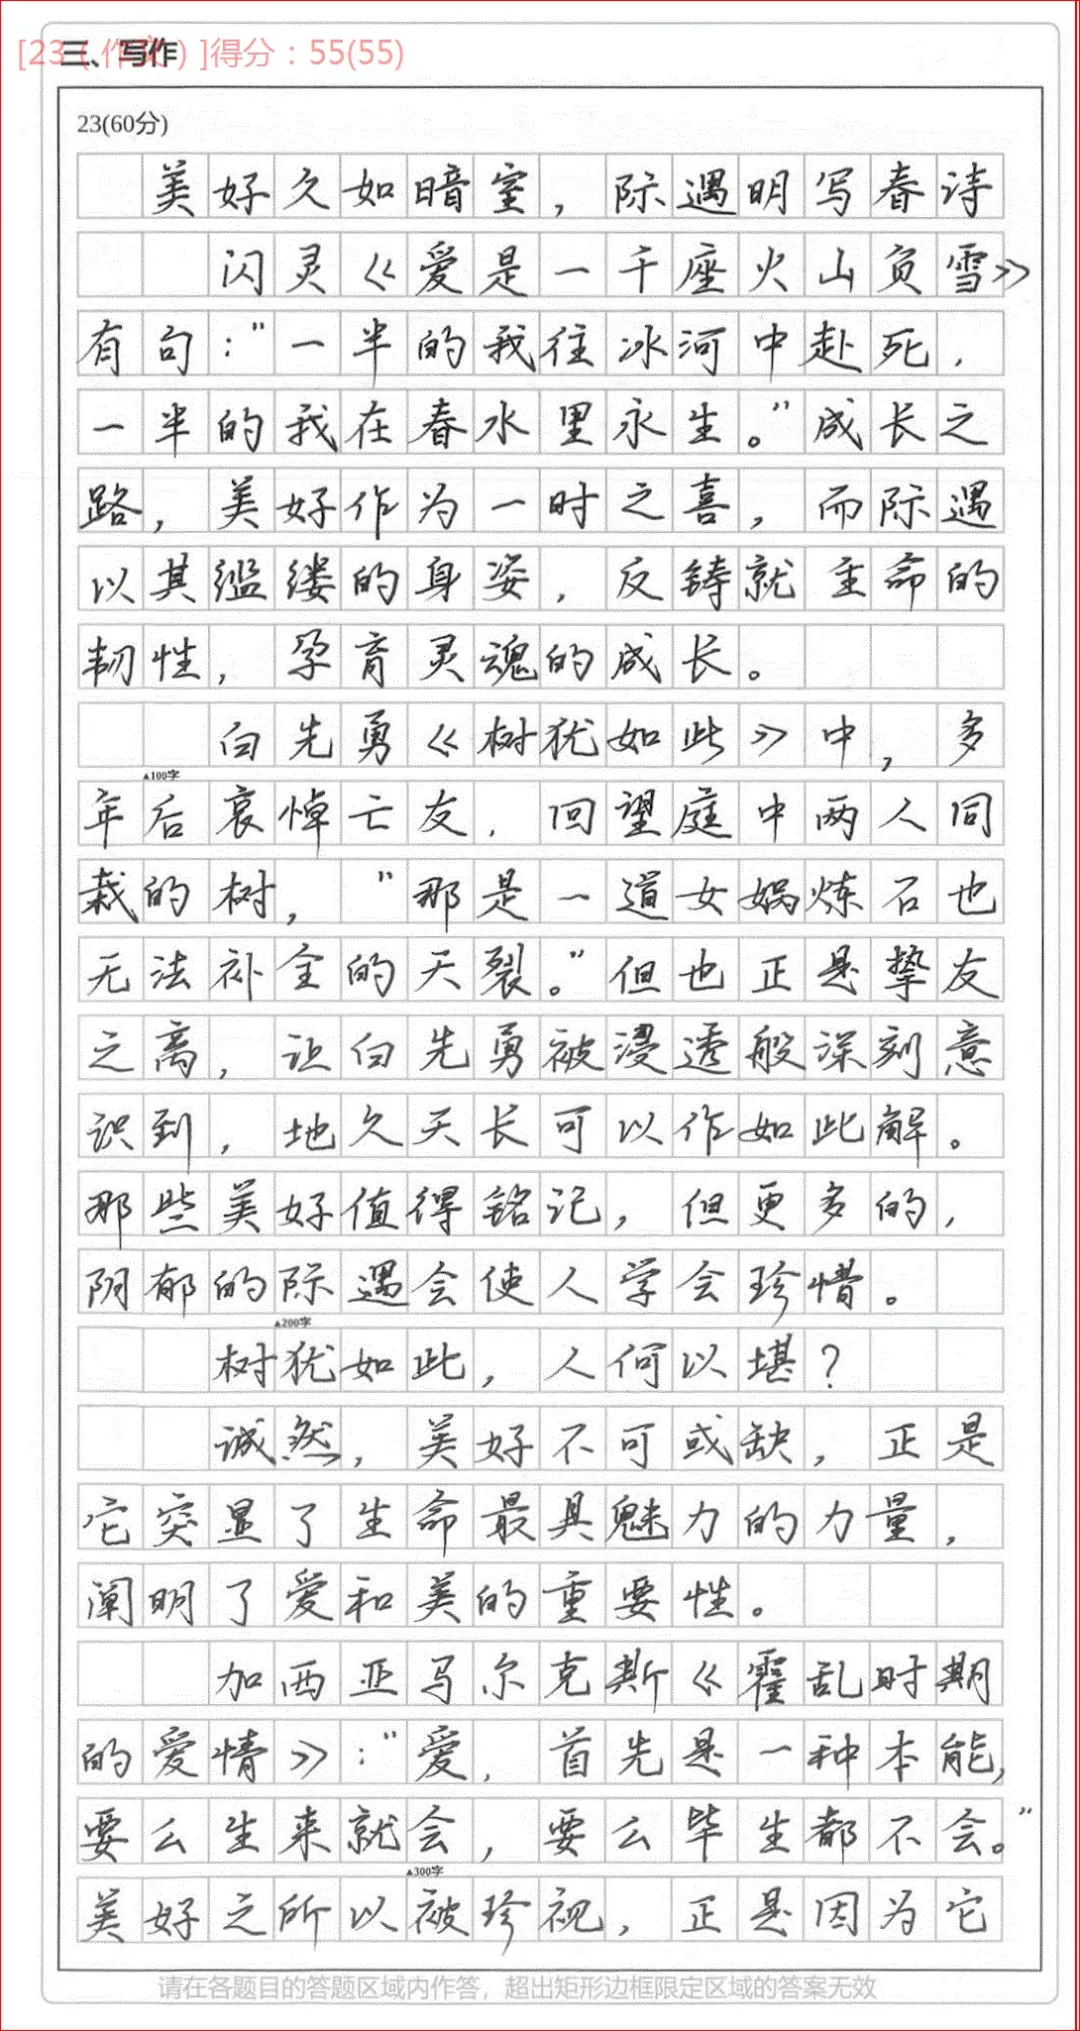 [23（作文）]得分：55(55)
三、写作
23(60分)
美好久如暗室，际遇明写春诗
闪灵《爱是一千座火山负雪》
有句："一半的我往冰河中赴死，
一半的我在春水里永生。"成长之
路，美好作为一时之喜，而际遇
以其缊缕的身姿，反铸就生命的
韧性，孕育灵魂的成长。
白先勇《树犹如此》中，多
▲100字
年后哀悼亡友，回望庭中两人同
栽的树，"那是一道女娲炼石也
无法补全的天裂。"但也正是挚友
之离，让白先勇被浸透般深刻意
识到，地久天长可以作如此解。
那些美好值得铭记，但更多的，
阴郁的际遇会使人学会珍惜。
▲200字
树犹如此，人何以堪？
诚然，美好不可或缺，正是
它突显了生命最具魅力的力量，
阐明了爱和美的重要性。
加西亚马尔克斯《霍乱时期
的爱情》："爱，首先是一种本能，
要么生来就会，要么毕生都不会。"
▲300字
美好之所以被珍视，正是因为它
请在各题目的答题区域内作答，超出矩形边框限定区域的答案无效